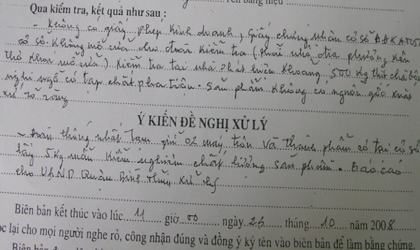 Qua kiểm tra, kết quả như sau :
- Không có giấy phép kinh doanh, Giấy chứng nhận cơ sở ĐKATVS
cơ sở không mở cửa cho đoàn kiểm tra (phải nhờ địa phương
mở cửa) kiểm tra tại nhà phát hiện khoang 500 Kg
nghi ngờ có tạp chất pha trộn. Sản phẩm không có nguồn gốc xuất
xứ rõ ràng
Ý KIẾN ĐỀ NGHỊ XỬ LÝ
- Đoàn thống nhất tạm giữ 02 máy trộn và thành phẩm có tại cơ sở
lấy 5 Kg mẫu kiểm nghiệm chất lượng sản phẩm. Báo cáo
cho UBND Quận Bình Thủy xử lý
Biên bản kết thúc vào lúc 11 giờ 00 ngày 23 tháng 10 năm 2008
đọc lại cho mọi người nghe rõ, công nhận đúng và đồng ý ký tên vào biên bản để làm bằng chứng